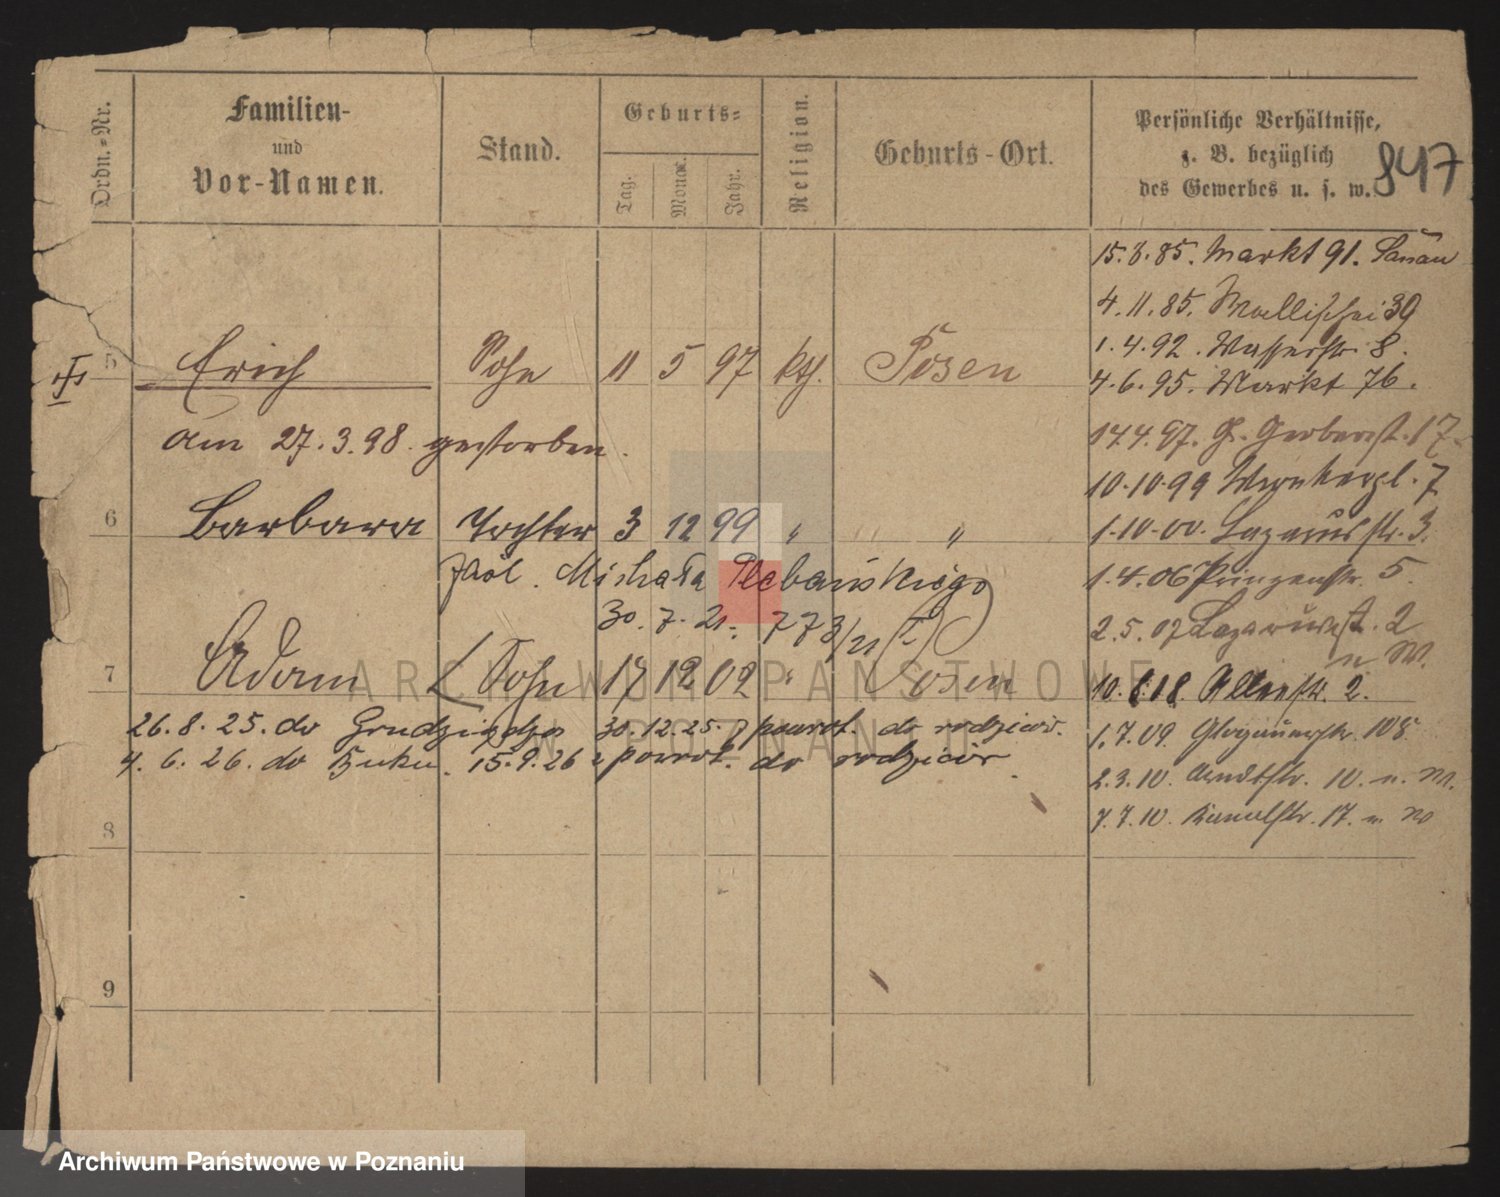 Ordn.-Nr.
Familien-
und
Vor-Namen.
Stand.
Geburts-
Tag.
Monat.
Jahr.
Religion.
Geburts-Ort.
Persönliche Verhältnisse,
z. B. bezüglich
des Gewerbes u. s. w.
847
15.8.85. Markt 91.
4.11.85. Wallischei 39
1.4.92. Wasserstr. 8.
4.6.95. Markt 76.
5 Erich Sohn 11 5 97 kth. Posen
am 27.3.98. gestorben.
14.4.97. Gr. Gerberst. 17
10.10.99 7
6 Barbara Tochter 3 12 99 " "
1.10.00. Lazarusstr. 3.
żaśl. Michała Plebańskiego
30.7.21. 773/21
1.4.06 Prinzenstr. 5.
2.5.07 Lazarusst. 2
n W.
7 Adam Sohn 17 12 02 " Posen
10.8.18. 2.
26.8.25. do Grudziądza 30.12.25. z powrot. do rodziców.
4.6.26. do Buku. 15.9.26 z powrot. do rodziców.
1.7.09. Glogauerstr. 108.
2.3.10. Arndtstr. 10. n. W.
7.7.10. Kanalstr. 17. n W
8
9
ARCHIWUM PAŃSTWOWE
W POZNANIU
Archiwum Państwowe w Poznaniu